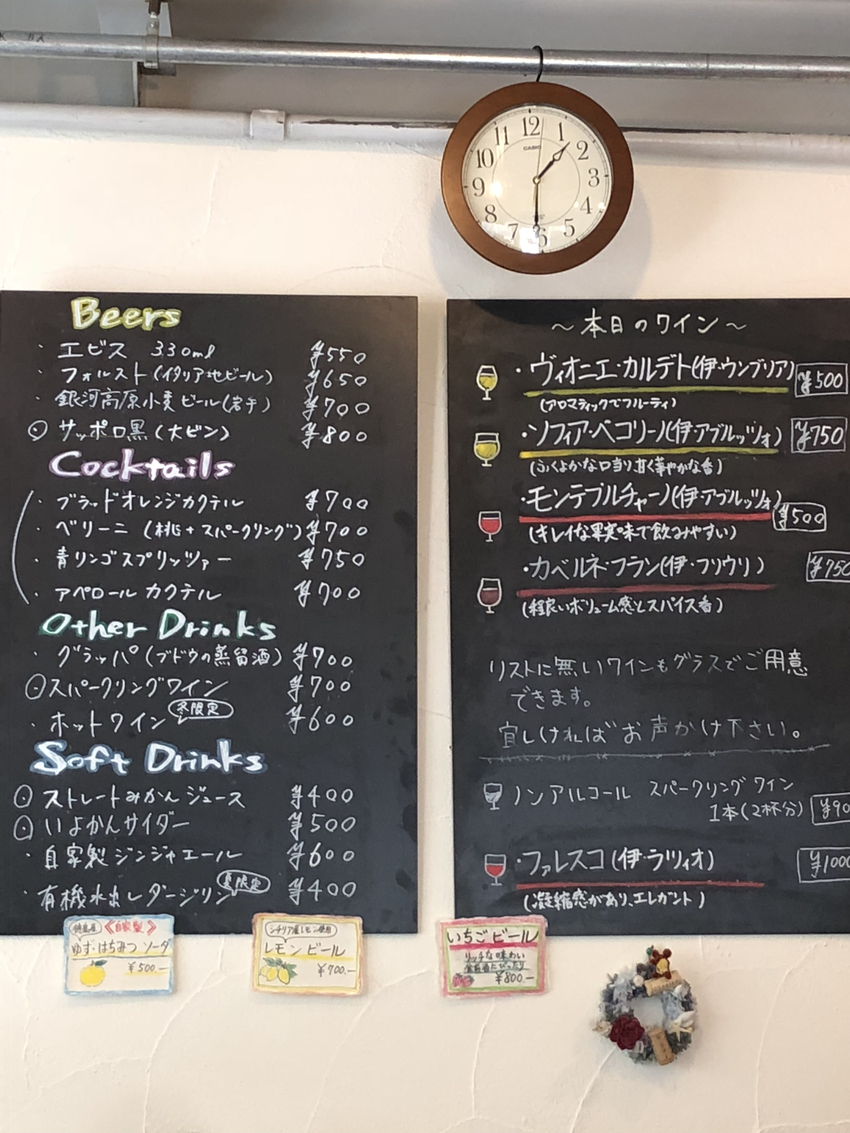 12
1
2
3
6
7
8
9
10
11
CASIO
Beers
・エビス 330ml ¥550
・フォルスト(イタリア地ビール) ¥650
・銀河高原小麦ビール(岩手) ¥700
・サッポロ黒(大ビン) ¥800
Cocktails
・ブラッドオレンジカクテル ¥700
・ベリーニ (桃+スパークリング) ¥700
・青リンゴスプリッツァー ¥750
・アペロールカクテル ¥700
Other Drinks
・グラッパ(ブドウの蒸留酒) ¥700
・スパークリングワイン ¥700
・ホットワイン 冬限定 ¥600
Soft Drinks
・ストレートみかんジュース ¥400
・いよかんサイダー ¥500
・自家製ジンジャエール ¥600
・有機水出しダージリン 夏限定 ¥400
〜本日のワイン〜
・ヴィオニエ・カルデト(伊・ウンブリア) ¥500
(アロマティックでフルーティ)
・ソフィア・ペコリーノ(伊・アブルッツォ) ¥750
(ふくよかな口当り、甘く華やかな香)
・モンテプルチャーノ(伊・アブルッツォ) ¥500
(キレイな果実味で飲みやすい)
・カベルネ・フラン(伊・フリウリ) ¥750
(程良いボリューム感とスパイス香)
リストに無いワインもグラスでご用意
できます。
宜しければお声かけ下さい。
ノンアルコール スパークリングワイン
1本(2杯分) ¥90
・ファレスコ(伊・ラツィオ) ¥1000
(凝縮感があり、エレガント)
徳島産 《自家製》
ゆず・はちみつソーダ
¥500.—
シチリア産レモン使用
レモンビール
¥700.—
いちごビール
リッチな味わい
¥800.—